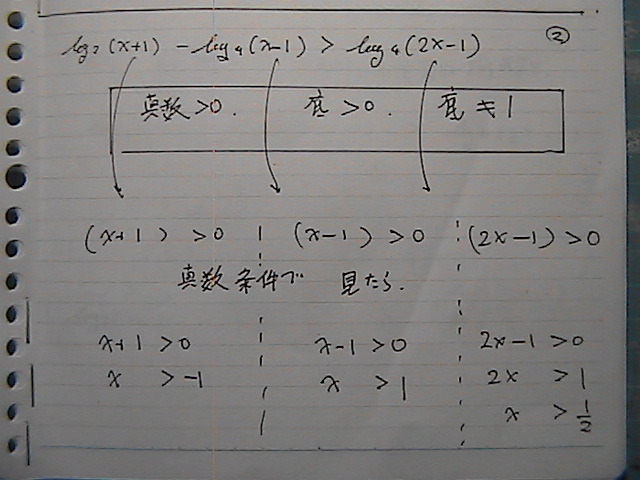 log₂(x+1) - log₄(x-1) > log₄(2x-1) ②
真数>0. 底>0. 底≠1
(x+1) >0 (x-1)>0 (2x-1)>0
真数条件で 見たら.
x+1>0 x-1>0 2x-1>0
x >-1 x >1 2x >1
x >1/2